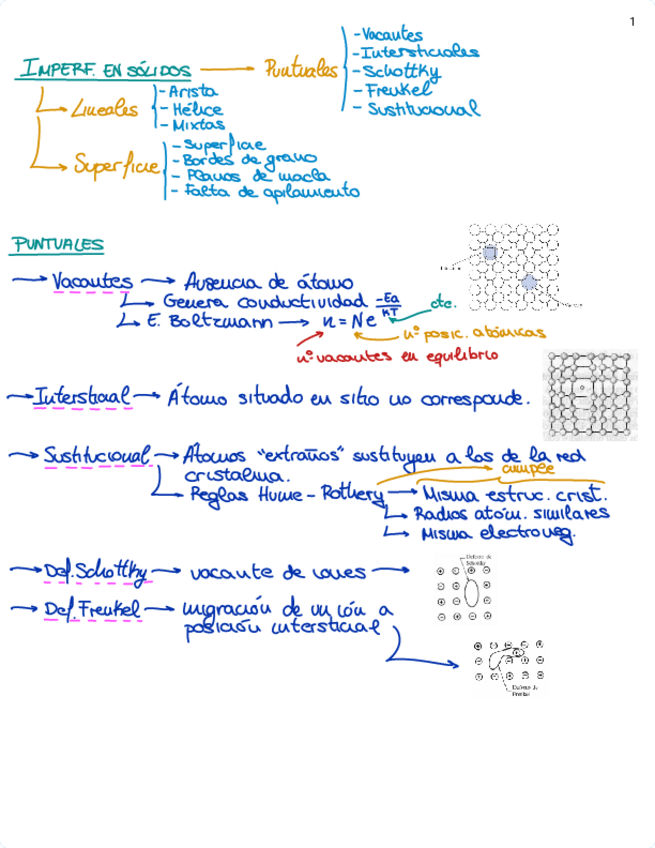 1
IMPERF. EN SÓLIDOS
Puntuales
- Vacantes
- Intersticiales
- Schottky
- Frenkel
- Sustitucional
Lineales
- Arista
- Hélice
- Mixtas
Superficie
- Superficie
- Bordes de grano
- Planos de macla
- Falta de apilamiento
PUNTUALES
→ Vacantes → Ausencia de átomo
↳ Genera conductividad
↳ E. Boltzmann → n = Ne^(-Ea/KT) ctc.
nº posic. atómicas
nº vacantes en equilibrio
→ Intersticial → Átomo situado en sitio no corresponde.
→ Sustitucional → Átomos "extraños" sustituyen a los de la red
cristalina.
cumple
↳ Reglas Hume-Rothery → Misma estruc. crist.
↳ Radios atóm. similares
↳ Misma electroneg.
→ Def. Schottky → vacante de iones →
Defecto de
Schottky
→ Def. Frenkel → migración de un ión a
posición intersticial
Defecto de
Frenkel